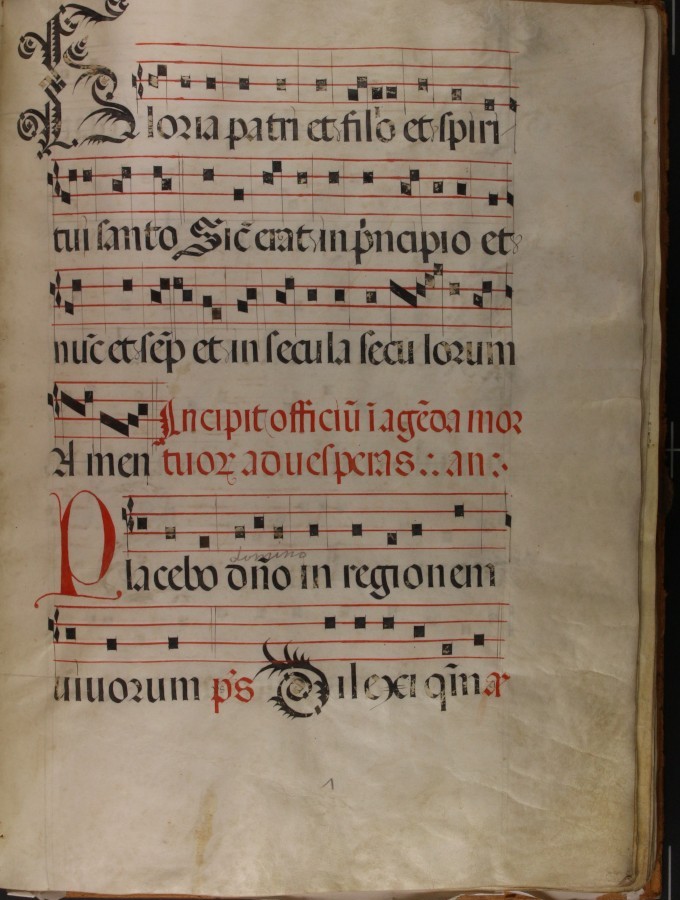 Gloria patri et filo et spiri
tui santo Sic̄ erat in p̄ncipio et
nūc et sēp et in secula secu lorum
A men Incipit officiū ī agēda mor
tuoꝝ ad uesperas ∴ an ჻
domino
Placebo dn̄o in regionem
uiuorum ps̄ Dilexi qm̄ ꝛ
1